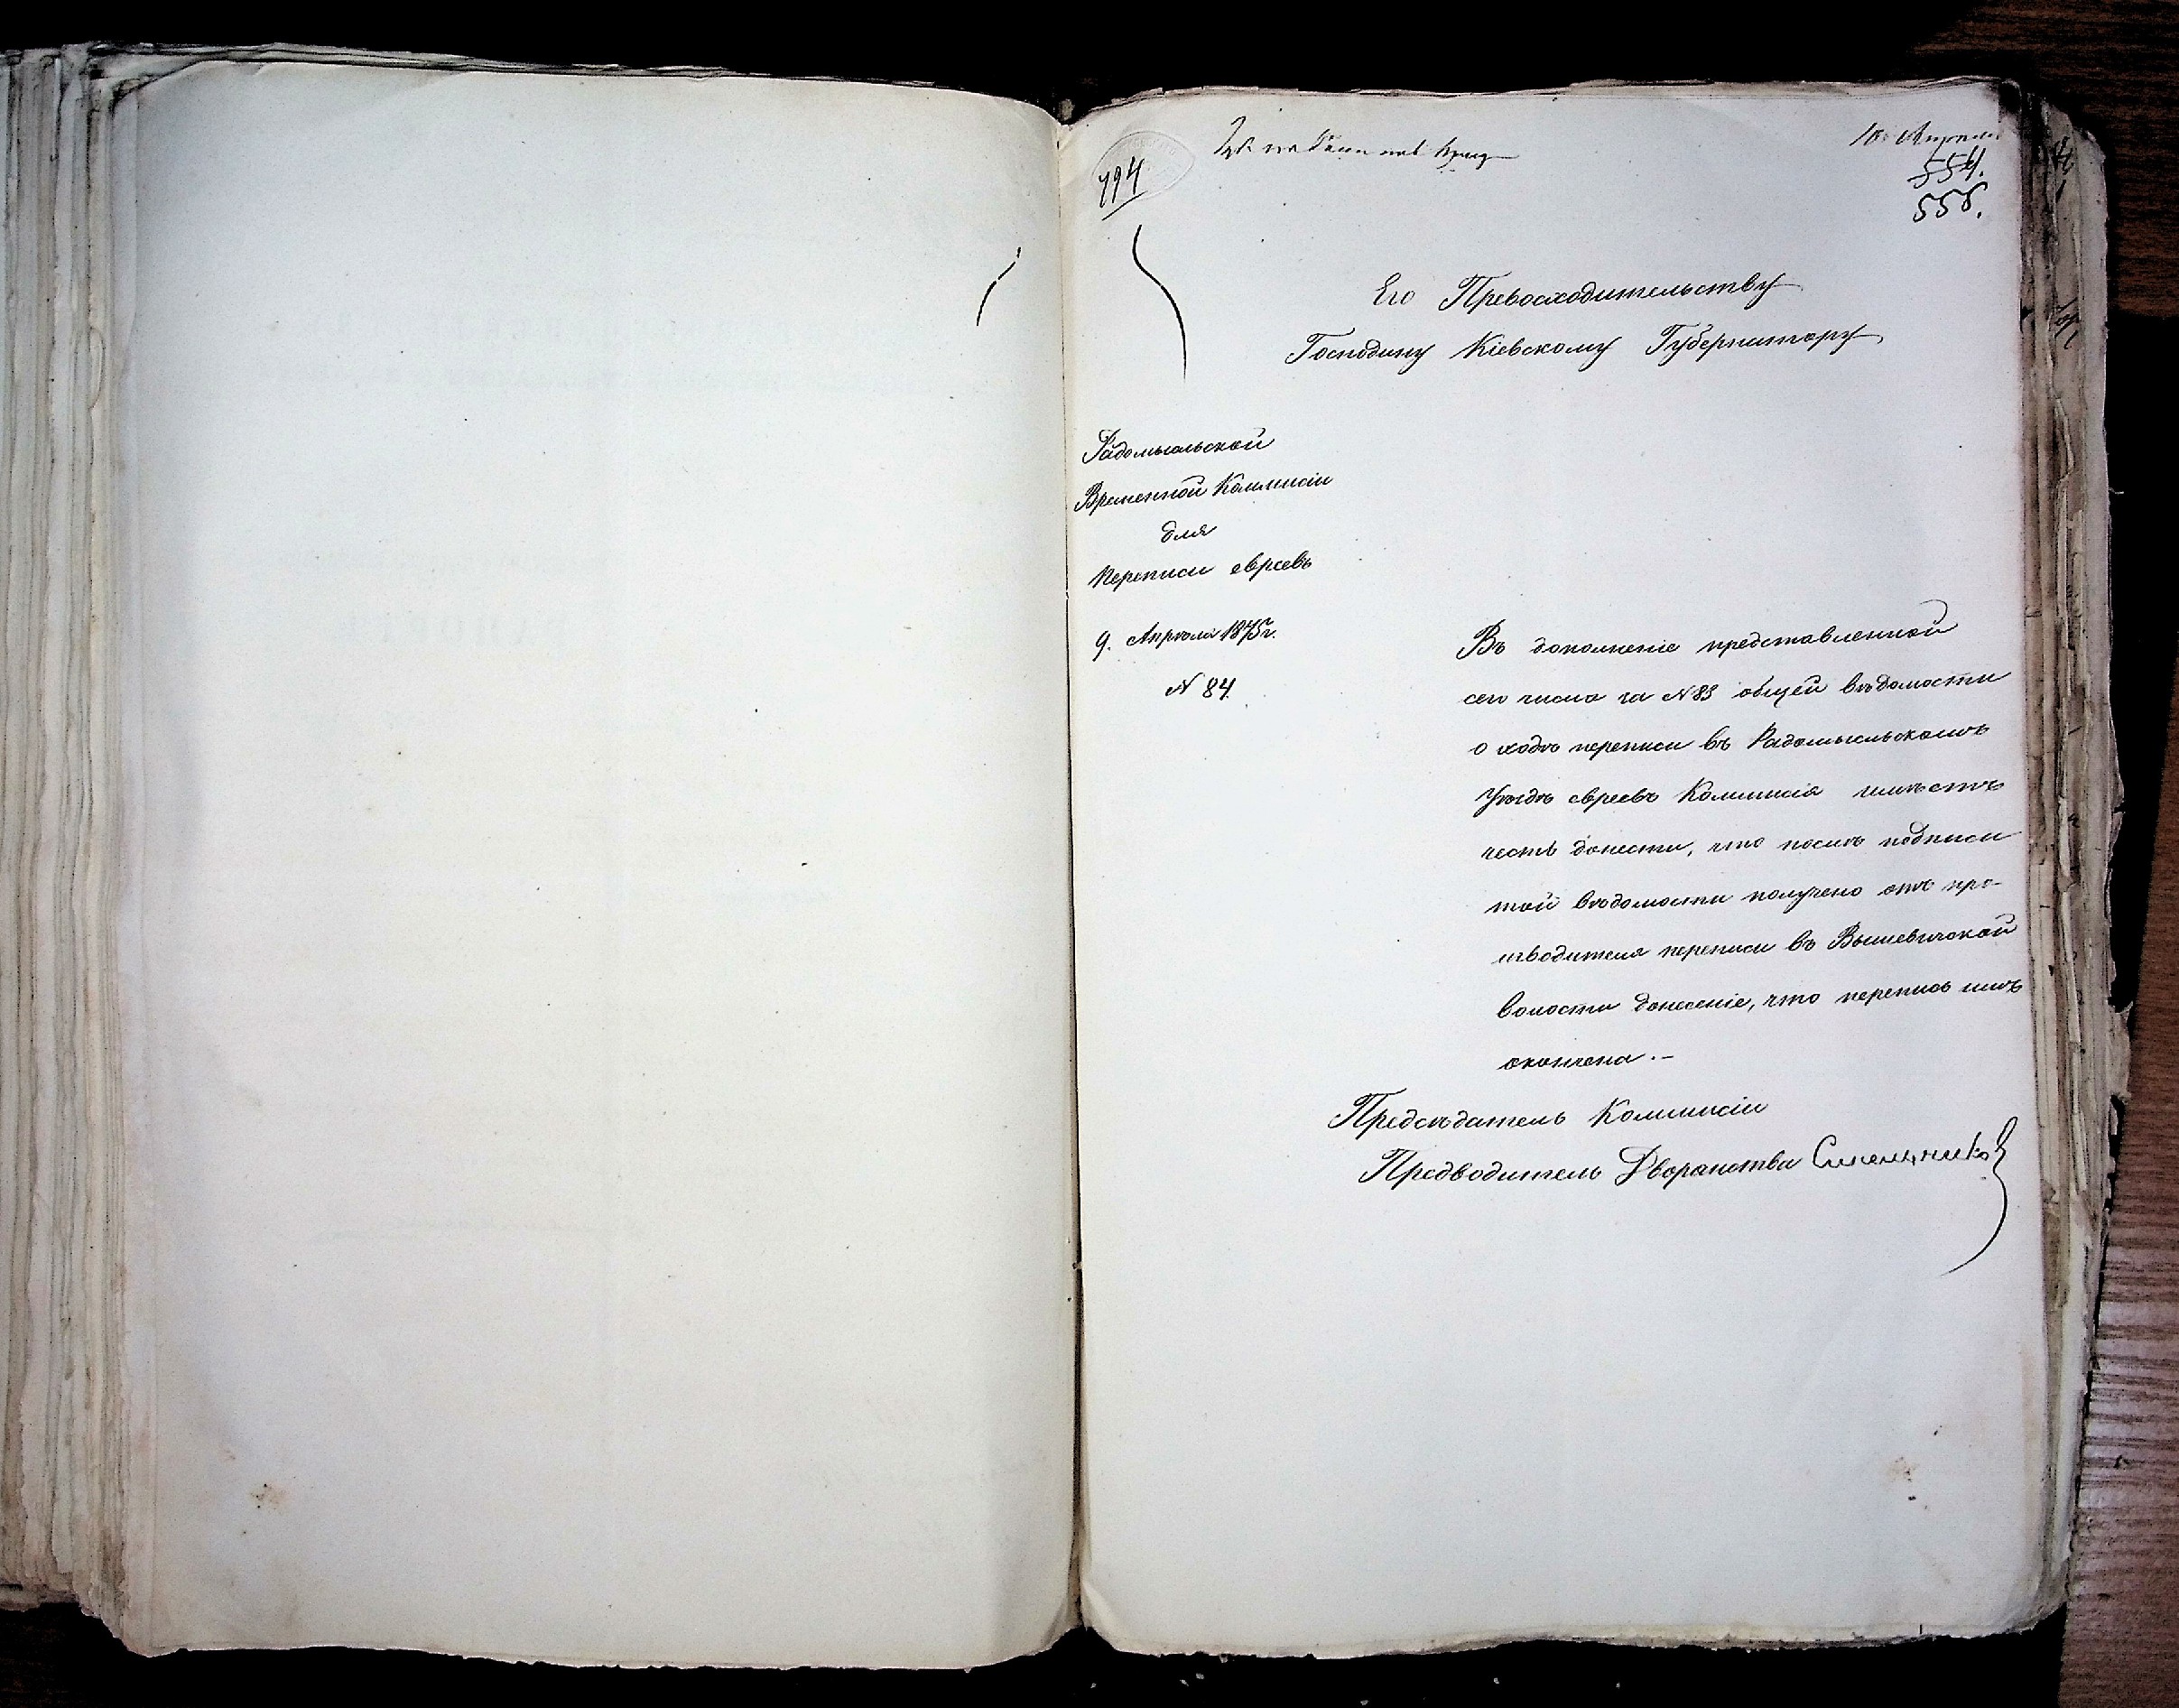 10 Апреля
794
554.
556.
Его Превосходительству
Господину Кіевскому Губернатору
Радомысльской
Временной Коммисіи
для
переписи евреевъ
9. Апрѣля 1875 г.
N 84.
Въ дополненіе представленной
сего числа за N 83 общей вѣдомости
о ходѣ переписи въ Радомысльскомъ
Уѣздѣ евреевъ Коммисія имѣетъ
честь донести, что послѣ подписи
той вѣдомости получено отъ про-
изводителя переписи въ Вышевичской
волости донесеніе, что перепись имъ
окончена. —
Предсѣдатель Коммисіи
Предводитель Дворянства